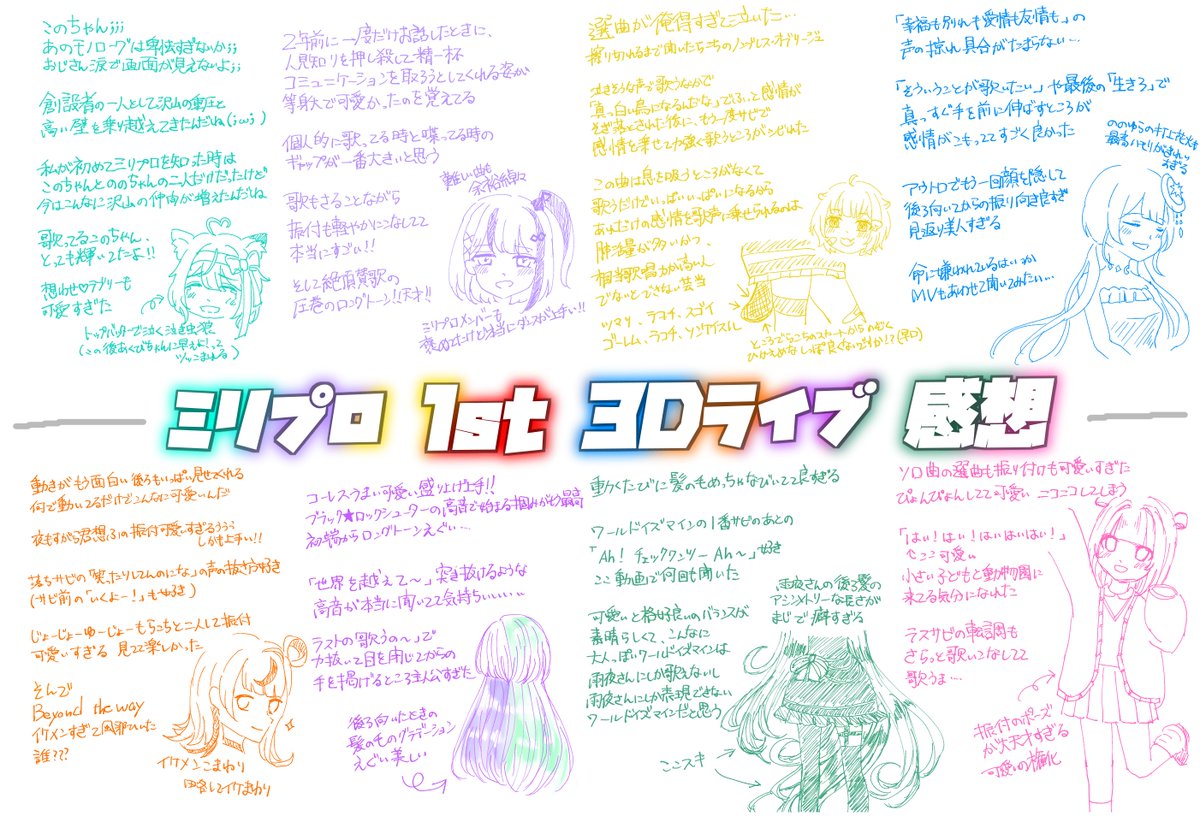 このちゃん;;;
あのモノローグは卑怯すぎないか;;
おじさん涙で画面が見えないよ;;
創設者の一人として沢山の重圧と
高い壁を乗り越えてきたんだね(;ω;)
私が初めてミリプロを知った時は
このちゃんとののちゃんの二人だけだったけど
今はこんなに沢山の仲間が増えたんだね
歌ってるこのちゃん、
とっても輝いてたよ!!
想わせセラブリーも
可愛すぎた
トップバッターで泣く泣き虫狼
(この後あくびちゃんに早えよ!って
ツッこまれる)
2年前に一度だけお話したときに、
人見知りを押し殺して精一杯
コミュニケーションを取ろうとしてくれる姿が
等身大で可愛かったのを覚えてる
個人的に歌ってる時と喋ってる時の
ギャップが一番大きいと思う
難しい曲も
余裕綽々
歌もさることながら
振付も軽やかにこなしてて
本当にすごい!!
そして絶頂賛歌の
圧巻のロングトーン!!天才!!
ミリプロメンバーも
褒めてたけど本当にダンスが上手い!!
選曲が俺得すぎて泣いた…
擦り切れるまで聞いたらっちのノンブレス・オブリージュ
泣きそうな声で歌うなかで
「真っ白い鳥になるんだな」でふっと感情が
そぎ落とされた後に、もう一度サビで
感情を乗せて力強く歌うところがシビれた
この曲は息を吸うところがなくて
歌うだけでいっぱいいっぱいになるから
あれだけの感情を歌声に乗せられるのは
肺活量が多いかつ、
相当歌唱力が高い人
でないとできない芸当
ツマリ、ラコチ、スゴイ
ゴーレム、ラコチ、ソンケイスル
ところでらこちのスカートからのぞく
ひかえめなしっぽ良くないですか!?(早口)
「幸福も別れも愛情も友情も」の
声の掠れ具合がたまらない…
「そういうことが歌いたい」や最後の「生きろ」で
真っすぐ手を前に伸ばすところが
感情がこもっててすごく良かった
ののゆらの打上花火
最高ハモリがきれい
すぎる
アウトロでもう一回顔を隠して
後ろ向いてからの振り向き良すぎ
見返り美人すぎる
命に嫌われているはいか
MVもあわせて聞いてみたい…
ミリプロ 1st 3Dライブ 感想
動きがもう面白い 後ろもいっぱい見せてくれる
何で動いてるだけでこんなに可愛いんだ
夜もすがら君想ふの振付可愛いすぎるぅぅぅ
しかも上手い!!
落ちサビの「笑ったりしてんのにな」の声の抜き方好き
(サビ前の「いくよー!」も好き)
じょーじょーゆーじょーもらっちと二人して振付
可愛いすぎる 見てて楽しかった
そんで
Beyond the way
イケメンすぎて風邪ひいた
誰???
イケメンこまわり
略してイケまわり
コーレスうまい可愛い盛り上げ上手!!
ブラック★ロックシューターの高音で始まる掴みがもう最高
初端からロングトーンえぐい…
「世界を越えて〜」突き抜けるような
高音が本当に聞いてて気持ちいいぃぃ
ラストの「歌うの〜」で
力抜いて目を閉じてからの
手を掲げるところ主人公すぎた
後ろ向いたときの
髪の毛のグラデーション
えぐい美しい
動くたびに髪の毛めっちゃなびいてて良すぎる
ワールドイズマインの1番サビのあとの
「Ah! チェックワンツー Ah〜」好き
ここ動画で何回も聞いた
可愛いと格好良いのバランスが
素晴らしくて、こんなに
大人っぽいワールドイズマインは
雨夜さんにしか歌えないし
雨夜さんにしか表現できない
ワールドイズマインだと思う
雨夜さんの後ろ髪の
アシンメトリーな長さが
まじで癖すぎる
ここスキ
ソロ曲の選曲も振り付けも可愛いすぎた
ぴょんぴょんしてて可愛い ニコニコしてしまう
「はい!はい!はいはいはい!」
↑ここ可愛い
小さい子どもと動物園に
来てる気分になれた
ラスサビの転調も
さらっと歌いこなしてて
歌うま…
振付のポーズ
が天才すぎる
可愛いの権化